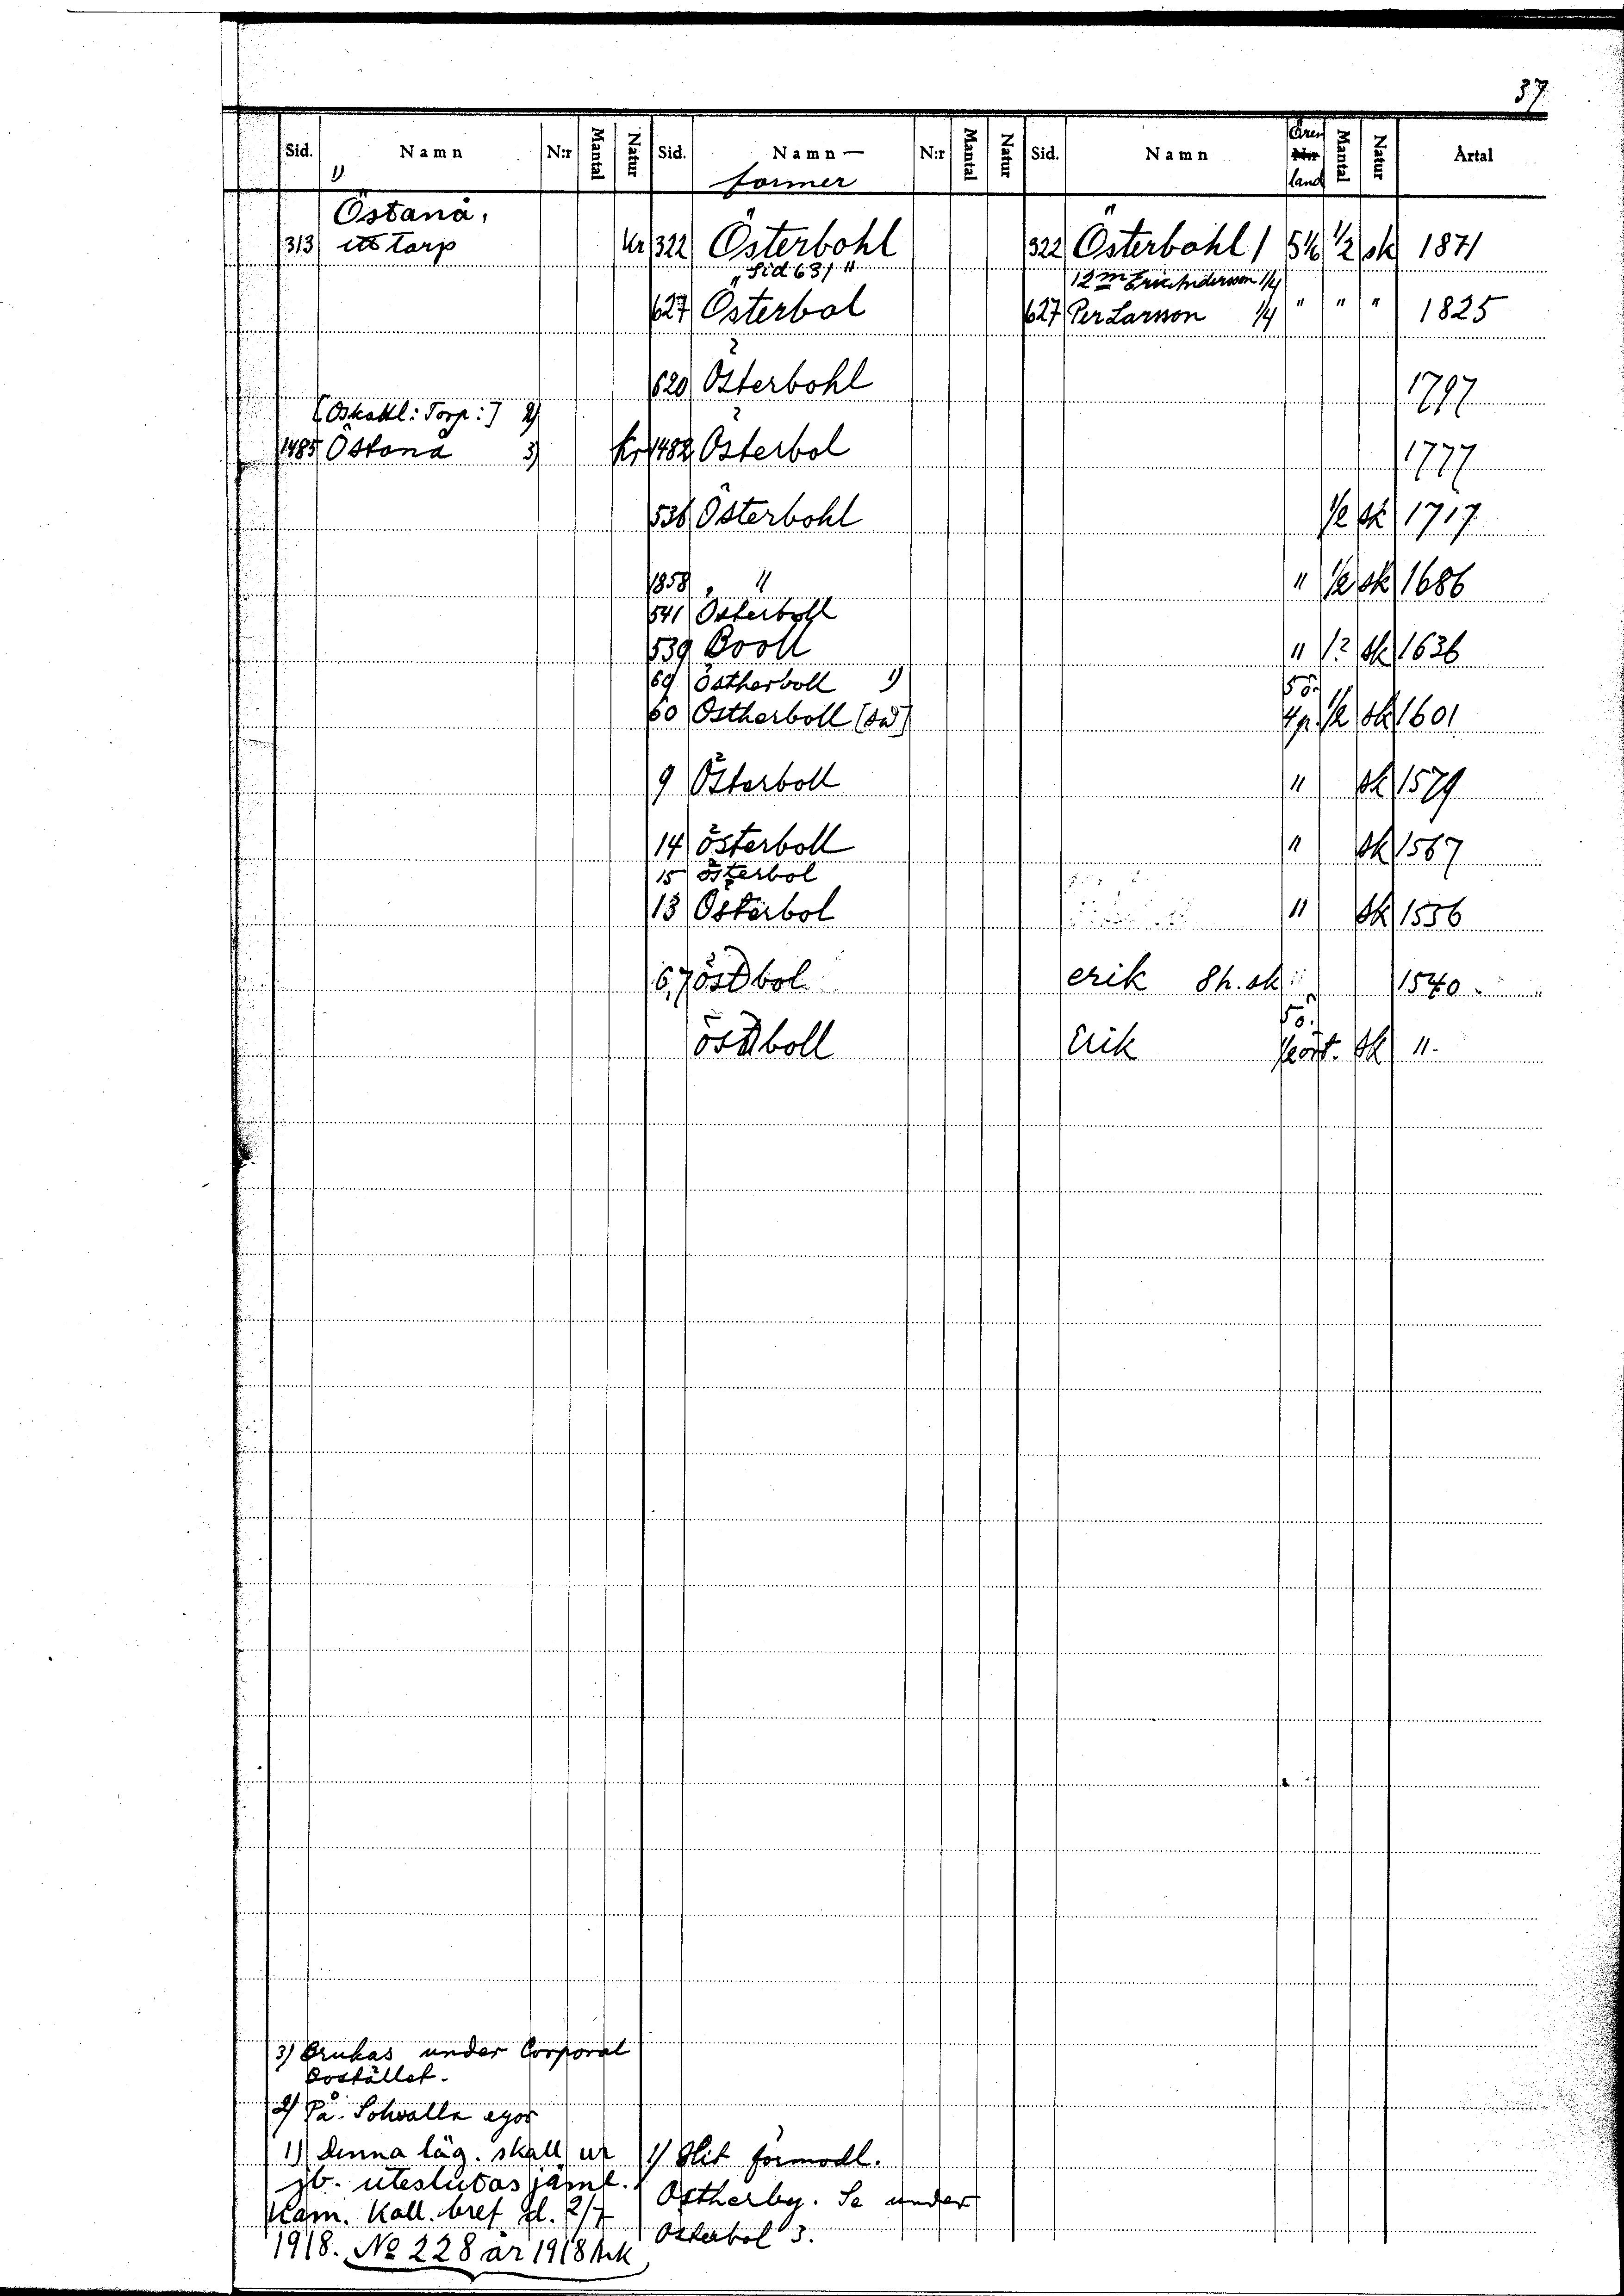 37
Sid. Namn N:r Mantal Natur Sid. Namn— N:r Mantal Natur Sid. Namn Öres Mantal Natur Årtal
1) former land
Östanå,
313 ett Torp Kr 322 Österbohl 322 Österbohl 1 5 1/6 1/2 sk 1871
"Sid 631" 12 m Eric Andersson 1/4
627 Österbol 627 Per Larsson 1/4 " " " 1825
620 Österbohl 1797
[Oskattl: Torp:] 2)
1485 Östanå 3) Kr 1482 Österbol 1777
536 Österbohl 1/2 sk 1717
1858 " " " 1/2 sk 1686
541 Österboll
539 Booll " 1? sk 1636
69 Östherboll 1) 5 ö.
60 Östherboll 4 p. 1/2 sk 1601
9 Österboll " sk 1579
14 österboll " sk 1567
15 österbol
13 Österbol " sk 1556
6,7 östbol erik 8 h. sk 1540
5 ö.
östboll Erik 1 ört. sk ".
3) Brukas under Corporal
Bostället.
2) På Solwalla egor
1) Denna läg. skall ur
jb. uteslutas jäml.
Kam. Koll. bref d. 2/7
1918. No 228 år 1918 Ark
1) Hit förmodl.
Östherby. Se under
Österbol 3.